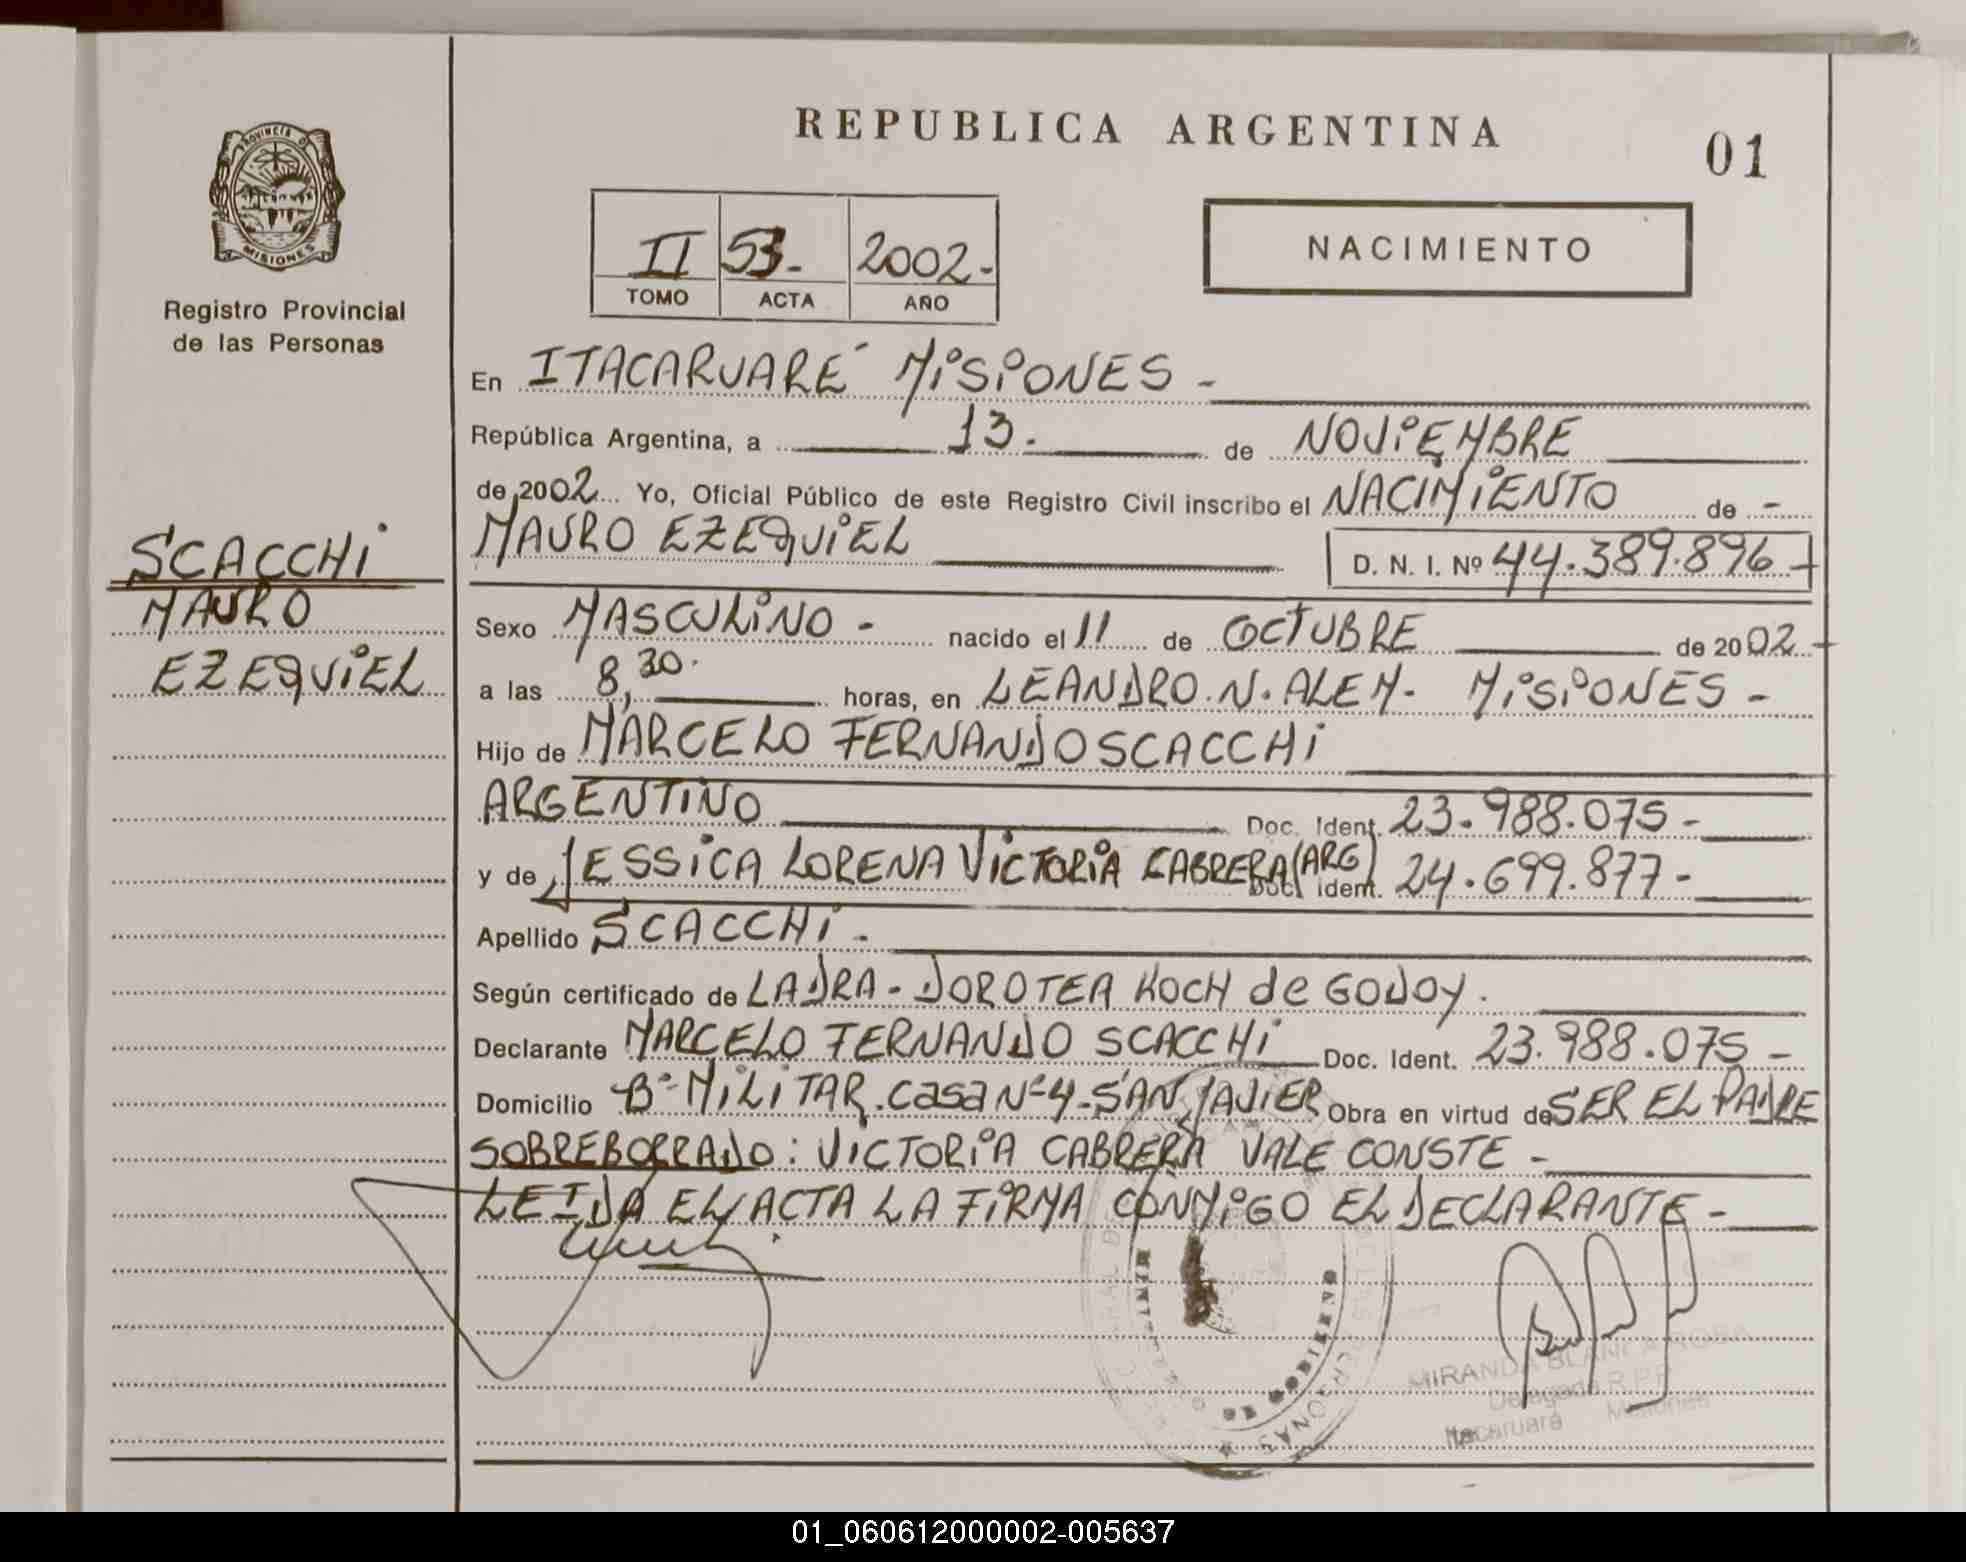 REPUBLICA ARGENTINA
01
PROVINCIA DE
MISIONES
Registro Provincial
de las Personas
II 53- 2002-
TOMO ACTA AÑO
NACIMIENTO
En ITACARUARÉ MISIONES -
República Argentina, a 13. de NOVIEMBRE
de 2002 Yo, Oficial Público de este Registro Civil inscribo el NACIMIENTO de -
MAURO EZEQUIEL D. N. I. Nº 44.389.896 -
SCACCHI
MAURO
EZEQUIEL
Sexo MASCULINO - nacido el 11 de OCTUBRE de 2002 -
a las 8,30. horas, en LEANDRO.N.ALEM. MISIONES -
Hijo de MARCELO FERNANDO SCACCHI
ARGENTINO Doc. Ident. 23.988.075 -
y de JESSICA LORENA VICTORIA CABRERA (ARG) Doc. Ident. 24.699.877 -
Apellido SCACCHI -
Según certificado de LA DRA - DOROTEA KOCH de GODOY.
Declarante MARCELO FERNANDO SCACCHI Doc. Ident. 23.988.075 -
Domicilio Bº MILITAR. Casa Nº 4 - SAN JAVIER Obra en virtud de SER EL PADRE
SOBREBORRADO: VICTORIA CABRERA VALE CONSTE -
LEIDA EL ACTA LA FIRMA CONMIGO EL DECLARANTE -
MIRANDA BLANCA ROSA
Delegada R.P.P.
Itacaruaré Misiones
01_060612000002-005637